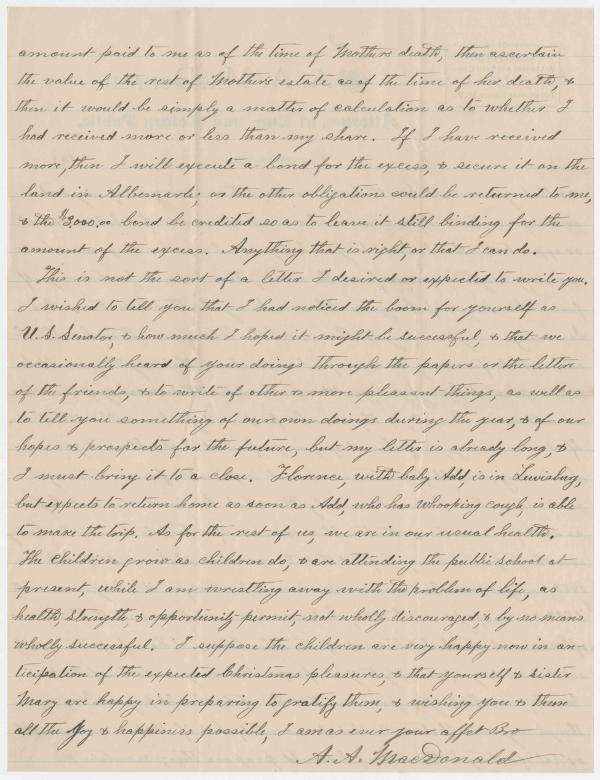 amount paid to me as of the time of Mothers death, then ascertain
the value of the rest of Mothers estate as of the time of her death, &
then it would be simply a matter of calculation as to whether I
had received more or less than my share. If I have received
more, then I will execute a bond for the excess, & secure it on the
land in Albemarle; or the other obligations could be returned to me,
& the $3,000.00 bond be credited so as to leave it still binding for the
amount of the excess. Anything that is right, or that I can do.
This is not the sort of a letter I desired or expected to write you.
I wished to tell you that I had noticed the boom for yourself as
U.S. Senator, & how much I hoped it might be successful, & that we
occasionally heard of your doings through the papers or the letters
of the friends, & to write of other & more pleasant things, as well as
to tell you something of our own doings during the year, & of our
hopes & prospects for the future, but my letter is already long, &
I must bring it to a close. Florence, with baby Add is in Lewisburg,
but expects to return home as soon as Add, who has whooping cough, is able
to make the trip. As for the rest of us, we are in our usual health.
The children grow as children do, & are attending the public school at
present, while I am wrestling away with the problem of life, as
health strength & opportunity permit, not wholly discouraged, & by no means
wholly successful. I suppose the children are very happy now in an-
ticipation of the expected Christmas pleasures, & that yourself & sister
Mary are happy in preparing to gratify them, & wishing you & them
all the joy & happiness possible, I am as ever your affet Bro
A. A. MacDonald